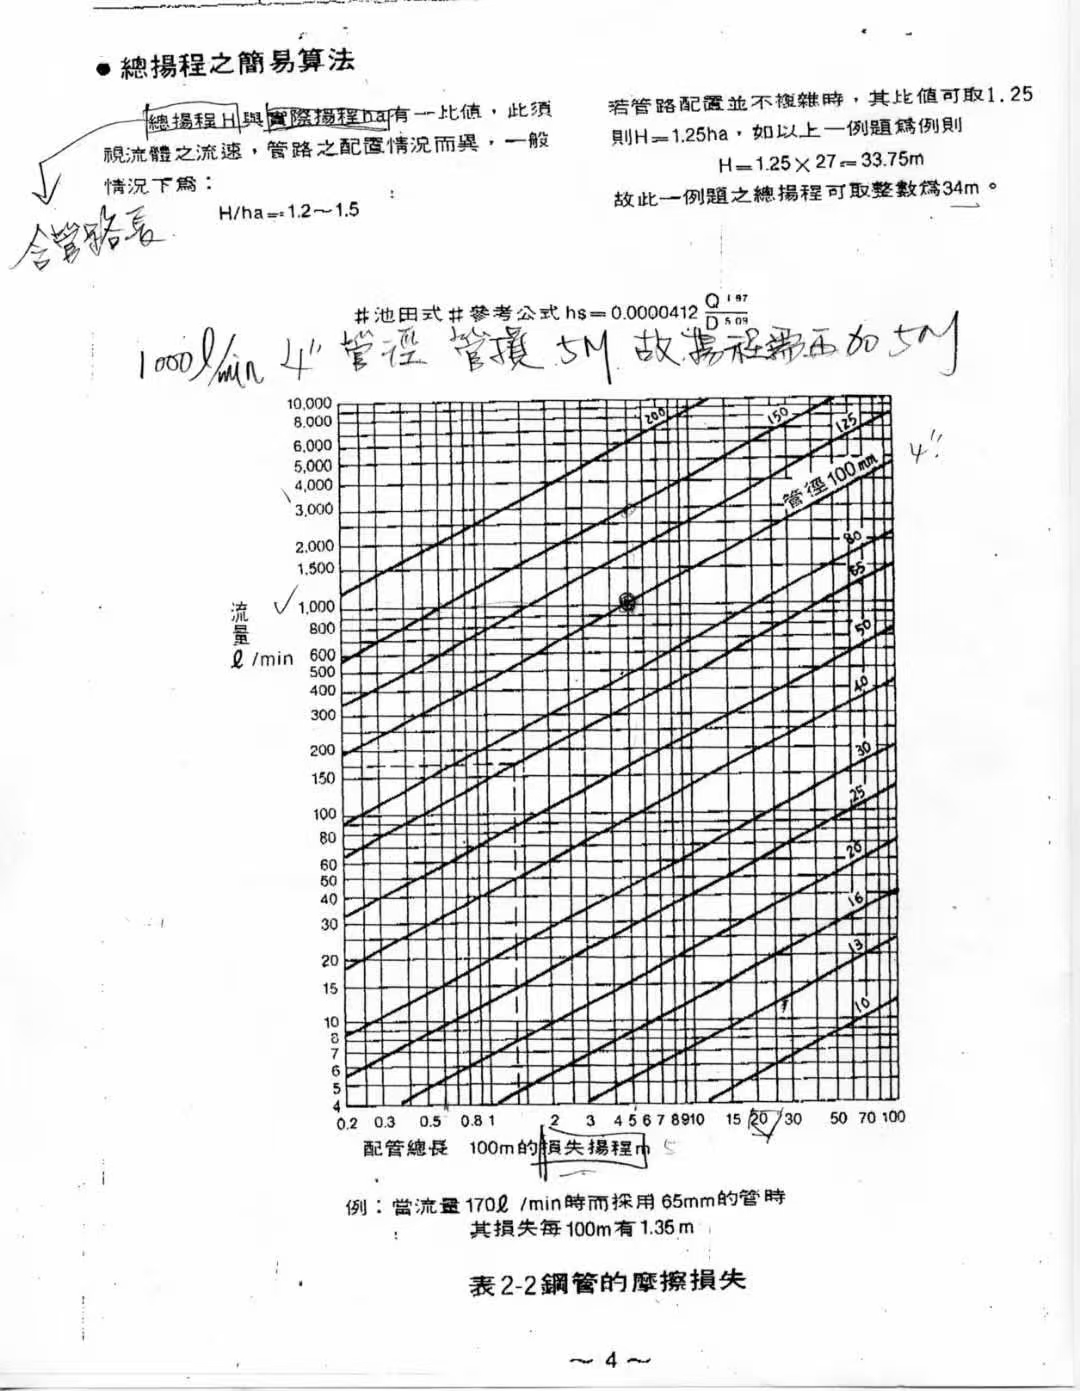 ●總揚程之簡易算法
總揚程H與實際揚程ha有一比值，此須
視流體之流速，管路之配置情況而異，一般
情況下爲：
H/ha=1.2～1.5
含管路長
若管路配置並不複雜時，其比值可取1.25
則H=1.25ha，如以上一例題爲例則
H=1.25×27=33.75m
故此一例題之總揚程可取整數爲34m。
#池田式#參考公式 hs=0.0000412 Q1.97/D5.09
1000ℓ/min 4" 管徑 管損 5M 故揚程需再加5M
10,000
8,000
6,000
5,000
4,000
3,000
2,000
1,500
1,000
800
600
500
400
300
200
150
100
80
60
50
40
30
20
15
10
8
7
6
5
4
流量
ℓ/min
200
150
125
管徑100mm
4"
80
65
50
40
30
25
20
16
13
10
0.2 0.3 0.5 0.8 1 2 3 4 5 6 7 8 9 10 15 20 30 50 70 100
配管總長 100m的損失揚程m 5
例：當流量170ℓ/min時而採用65mm的管時
其損失每100m有1.35m
表2-2鋼管的摩擦損失
～4～